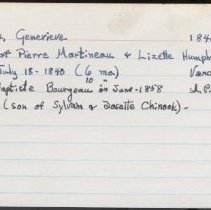 , Genevieve 184
of Pierre Martineau & Lizette Humph
July 18-1840 (6 mo) Vanc
10
aptiste Bourgeau in June-1858 St. P
(son of Sylvain & Josette Chinook)-